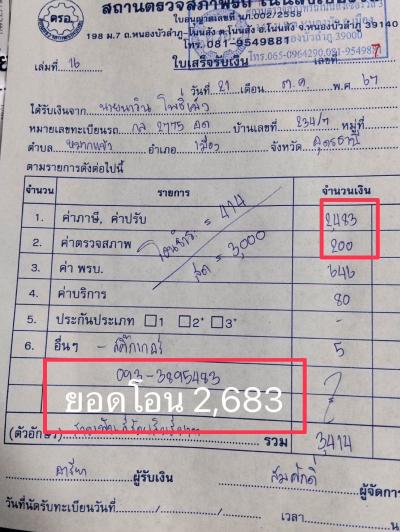 สถานตรวจสภาพรถ โนนสังเ
ใบอนุญาตเลขที่ นภ.002/2558
198 ม.7 ถ.หนองบัวลำภู-โนนสัง ต.โนนสัง อ.โนนสัง จ.หนองบัวลำภู 39140
โทร.081-9549881
เล่มที่ 16 ใบเสร็จรับเงิน เลขที่ 7
วันที่ 21 เดือน ต.ค. พ.ศ. 67
ได้รับเงินจาก นายนาวิน
หมายเลขทะเบียนรถ กล 2775 อด บ้านเลขที่ 234/7 หมู่ที่
ตำบล หมากแข้ง อำเภอ เมือง จังหวัด อุดรธานี
ตามรายการดังต่อไปนี้
จำนวน รายการ จำนวนเงิน
1. ค่าภาษี, ค่าปรับ 2,483
2. ค่าตรวจสภาพ 200
= 414
สด = 3,000
3. ค่า พรบ. 646
4. ค่าบริการ 80
5. ประกันประเภท 1 2+ 3+ -
6. อื่นๆ - สติ๊กเกอร์ 5
093-3895483
ยอดโอน 2,683
(ตัวอักษร) รวม 3414
ผู้รับเงิน สมศักดิ์ ผู้จัดการ
วันที่นัดรับทะเบียนวันที่ เวลา น